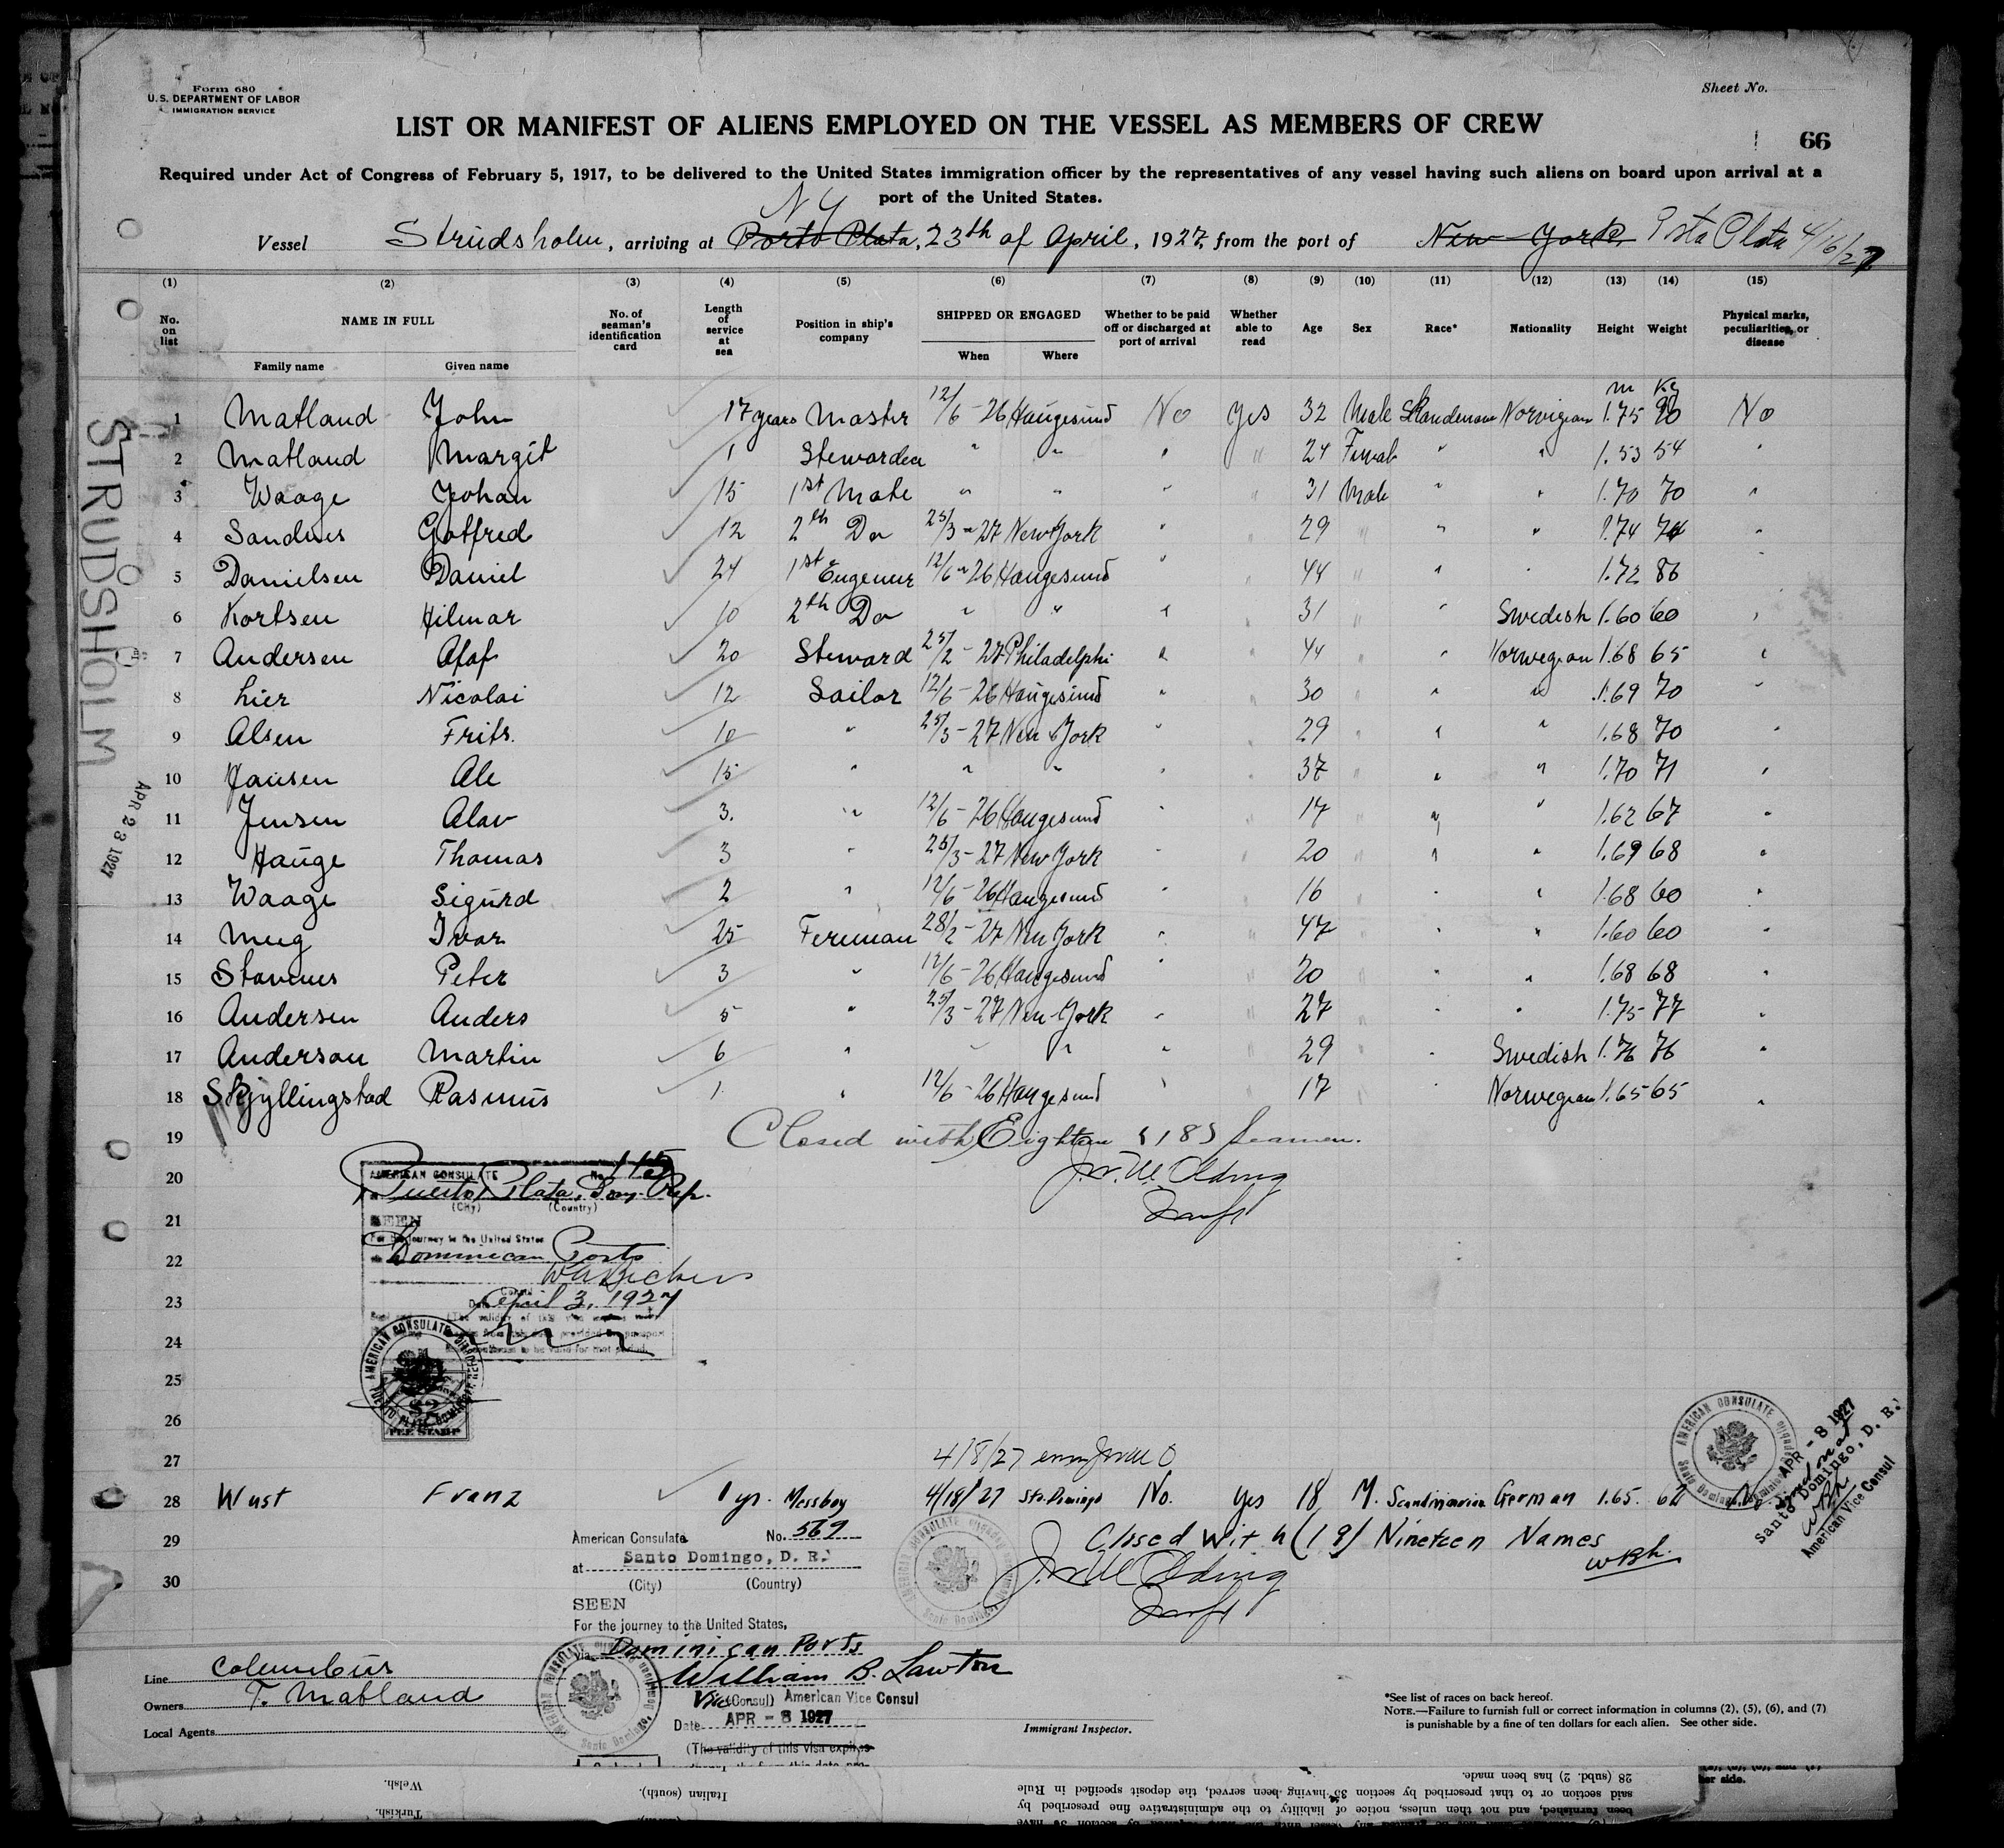 Form 680
U. S. DEPARTMENT OF LABOR
IMMIGRATION SERVICE
Sheet No.
LIST OR MANIFEST OF ALIENS EMPLOYED ON THE VESSEL AS MEMBERS OF CREW
66
Required under Act of Congress of February 5, 1917, to be delivered to the United States immigration officer by the representatives of any vessel having such aliens on board upon arrival at a
port of the United States.
N Y
Vessel Strudsholm, arriving at Porto Plata, 23th of April, 1927, from the port of New York Pta Plata 4/16/27
(1) (2) (3) (4) (5) (6) (7) (8) (9) (10) (11) (12) (13) (14) (15)
No. on list NAME IN FULL Family name Given name No. of seaman's identification card Length of service at sea Position in ship's company SHIPPED OR ENGAGED When Where Whether to be paid off or discharged at port of arrival Whether able to read Age Sex Race* Nationality Height Weight Physical marks, peculiarities, or disease
m Kg
1 Matland John 17 years Master 12/6 - 26 Haugesund No Yes 32 Male Skandenav Norvigean 1.75 90 No
2 Matland Margit 1 Stewardea " " " " 24 Femal " " 1.53 54 "
3 Waage Johan 15 1st Mate " " " " 31 Male " " 1.70 70 "
4 Sandnes Gotfred 12 2th Do 25/3 - 27 New York " " 29 " " " 1.74 74 "
5 Danielsen Daniel 24 1st Engeneer 12/6 - 26 Haugesund " " 44 " " " 1.72 86
6 Kortsen Hilmar 10 2th Do " " " " 31 " " Swedish 1.60 60 "
7 Andersen Olaf 20 Steward 25/2 - 27 Philadelphi " " 44 " " Norwegian 1.68 65 "
8 Lier Nicolai 12 Sailor 12/6 - 26 Haugesund " " 30 " " " 1.69 70 "
9 Olsen Frits. 10 " 25/3 - 27 New York " " 29 " " " 1.68 70 "
10 Jansen Ole 15 " " " " " 37 " " " 1.70 71 "
11 Jensen Olav 3. " 12/6 - 26 Haugesund " " 17 " " " 1.62 67 "
12 Hauge Thomas 3 " 25/3 - 27 New York " " 20 " " " 1.69 68 "
13 Waage Sigurd 2 " 12/6 - 26 Haugesund " " 16 " " " 1.68 60 "
14 Ivar 25 Fereman 28/2 - 27 New York " " 47 " " " 1.60 60 "
15 Peter 3 " 12/6 - 26 Haugesund " " 20 " " " 1.68 68 "
16 Andersen Anders 5 " 25/3 - 27 New York " " 27 " " " 1.75 77 "
17 Anderson Martin 6 " " " " " 29 " " Swedish 1.76 76 "
18 Skjyllingstad Rasmus 1 " 12/6 - 26 Haugesund " " 17 " " Norwegian 1.65 65 "
19 Closed with Eighteen (18) Seamen.
20
21
22
23
24
25
26
27
AMERICAN CONSULATE No. 115
at Puerto Plata, Dom. Rep.
(City) (Country)
SEEN
For the journey to the United States
via Dominican Ports
Consul
Date April 3, 1927
AMERICAN CONSULATE
FEE STAMP
4/8/27
28 Wust Franz 1 yr. Messboy 4/18/27 Sto. Domingo No. yes 18 M. Scandinavian German 1.65. 62 No.
29 Closed with (19) Nineteen Names
30
WBL.
AMERICAN CONSULATE
APR - 8 1927
Santo Domingo, D. R.
American Vice Consul
American Consulate No. 569
at Santo Domingo, D. R.
(City) (Country)
SEEN
For the journey to the United States,
via Dominican Ports
William B. Lawton
Vice (Consul) American Vice Consul
Date APR - 8 1927
(The validity of this visa expires
Line Columbus
Owners T. Matland
Local Agents
Immigrant Inspector.
*See list of races on back hereof.
NOTE.—Failure to furnish full or correct information in columns (2), (5), (6), and (7)
is punishable by a fine of ten dollars for each alien. See other side.
STRUDSHOLM
APR 23 1927
Welsh.
Turkish.
Italian (south).
28 (subd. 2) has been made.
said section or to that prescribed by section 35 having been served, the deposit specified in Rule
been furnished, and not then unless, notice of liability to the administrative fine prescribed by
her side.